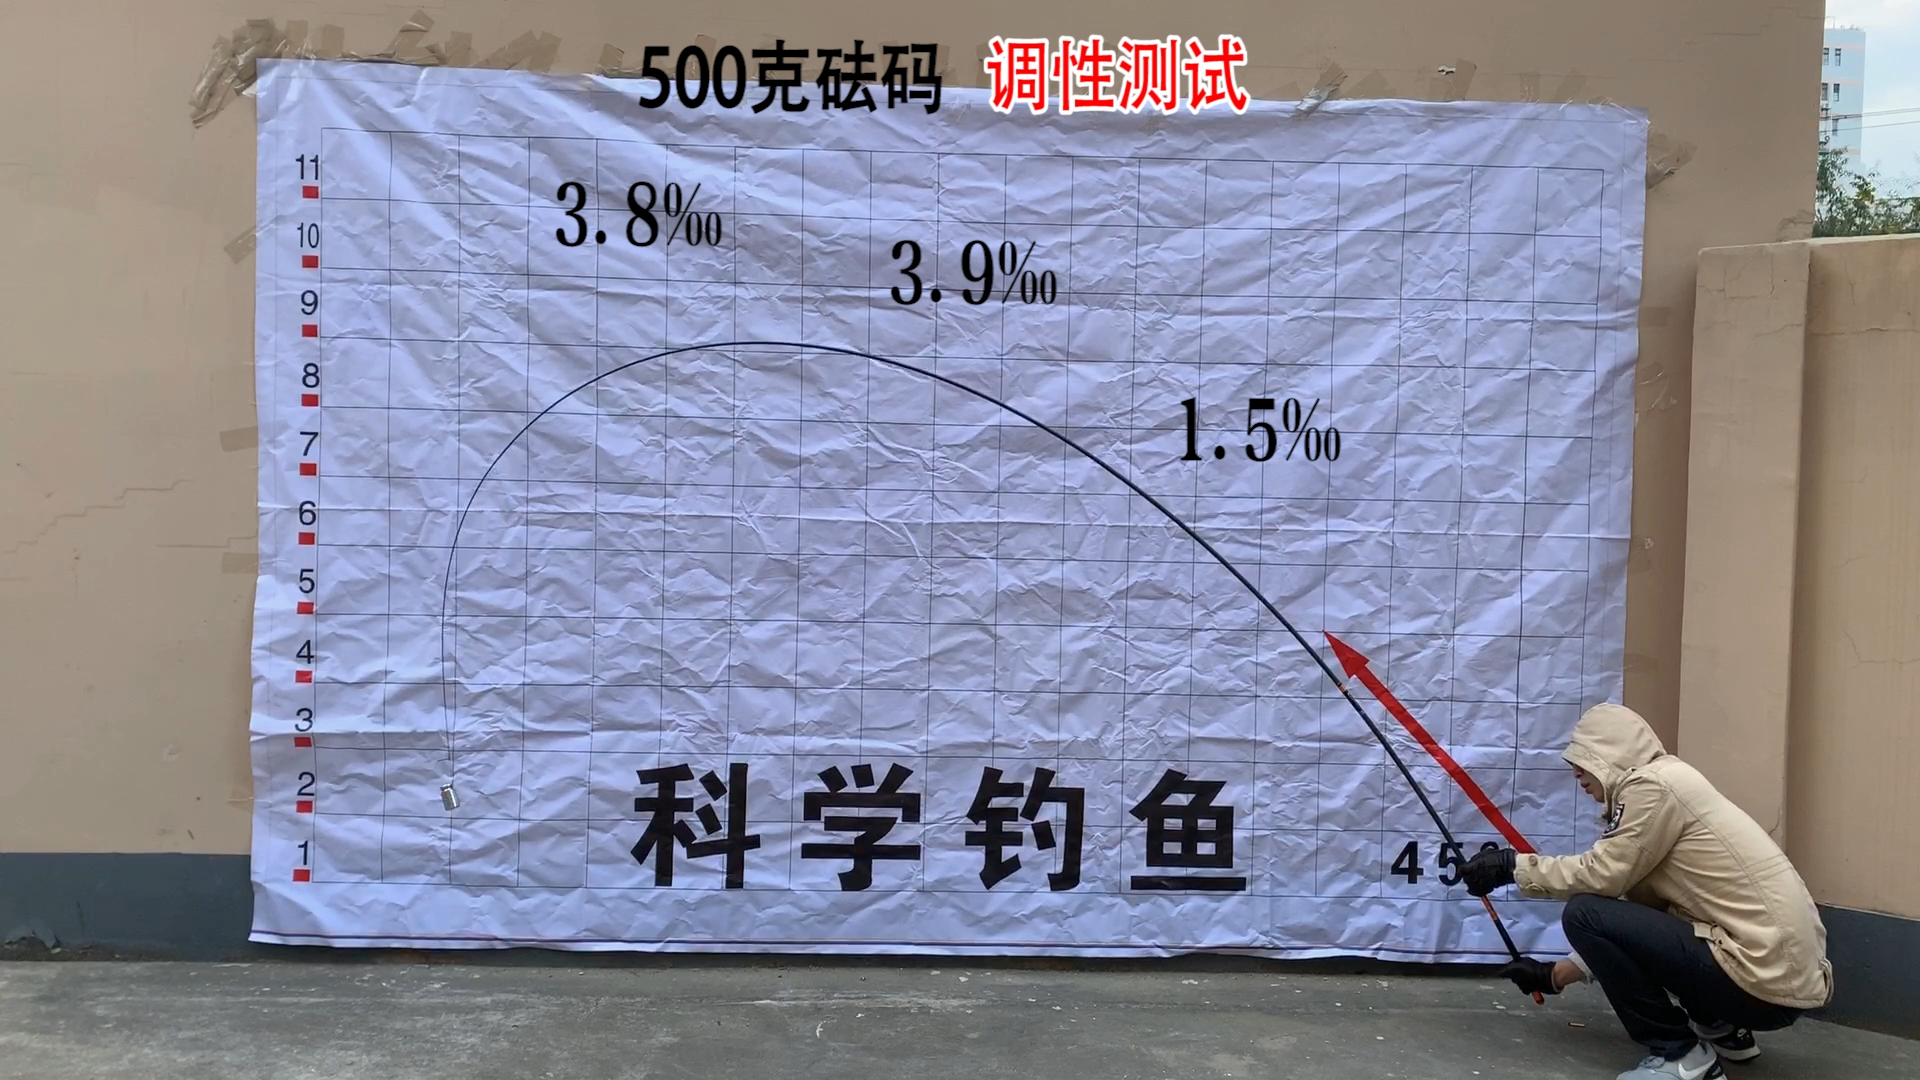 500克砝码 调性测试
11
3.8‰
10
3.9‰
9
8
1.5‰
7
6
5
4
3
2
1
科学钓鱼
45